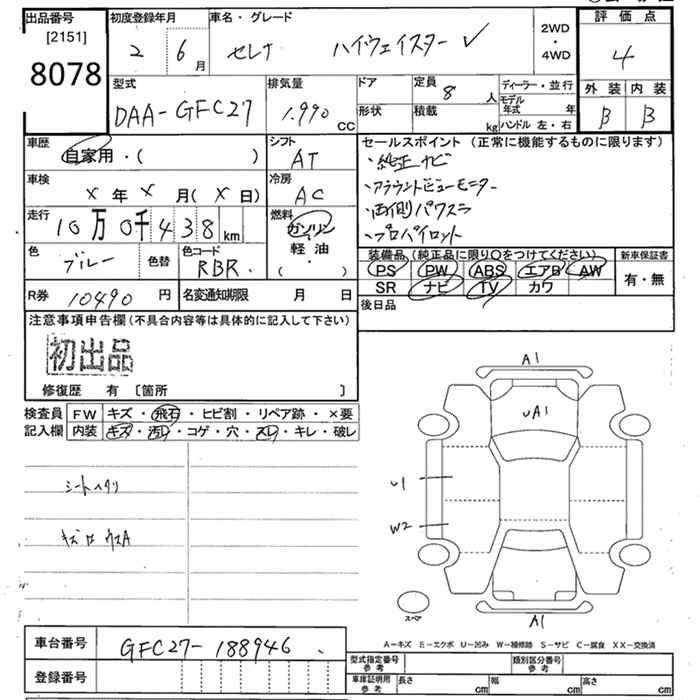 出品番号
[2151]
8078
初度登録年月
2 6月
車名・グレード
セレナ ハイウェイスター ✓
2WD
・
4WD
評価点
4
外装 内装
B B
型式
DAA-GFC27
排気量
1,990 CC
ドア
形状
定員 8 人
積載 kg
ディーラー・並行
モデル年式 年
ハンドル 左・右
車歴
自家用・( )
シフト
AT
車検
× 年 × 月( × 日)
冷房
AC
走行
10万0千438 km
燃料
ガソリン
軽油
( ・ )
色
ブルー
色替
色コード
RBR
R券 10490 円
名変通知期限 月 日
セールスポイント(正常に機能するものに限ります)
・純正ナビ
・アラウンドビューモニター
・両側パワスラ
・プロパイロット
装備品(純正品に限り○をつけてください)
PS PW ABS エアB AW
SR ナビ TV カワ
新車保証書
有・無
後日品
注意事項申告欄(不具合内容等は具体的に記入して下さい)
初出品
修復歴 有 〔箇所 〕
検査員記入欄
FW キズ・飛石・ヒビ割・リペア跡・×要
内装 キズ・汚レ・コゲ・穴・スレ・キレ・破レ
シートヘタリ
A1
UA1
U1
W2
A1
スペア
A-キズ E-エクボ U-凹み W-補修跡 S-サビ C-腐食 XX-交換済
車台番号 GFC27-188946
登録番号
型式指定番号 参考
類別区分番号 参考
車庫証明用 参考
長さ cm 幅 cm 高さ cm